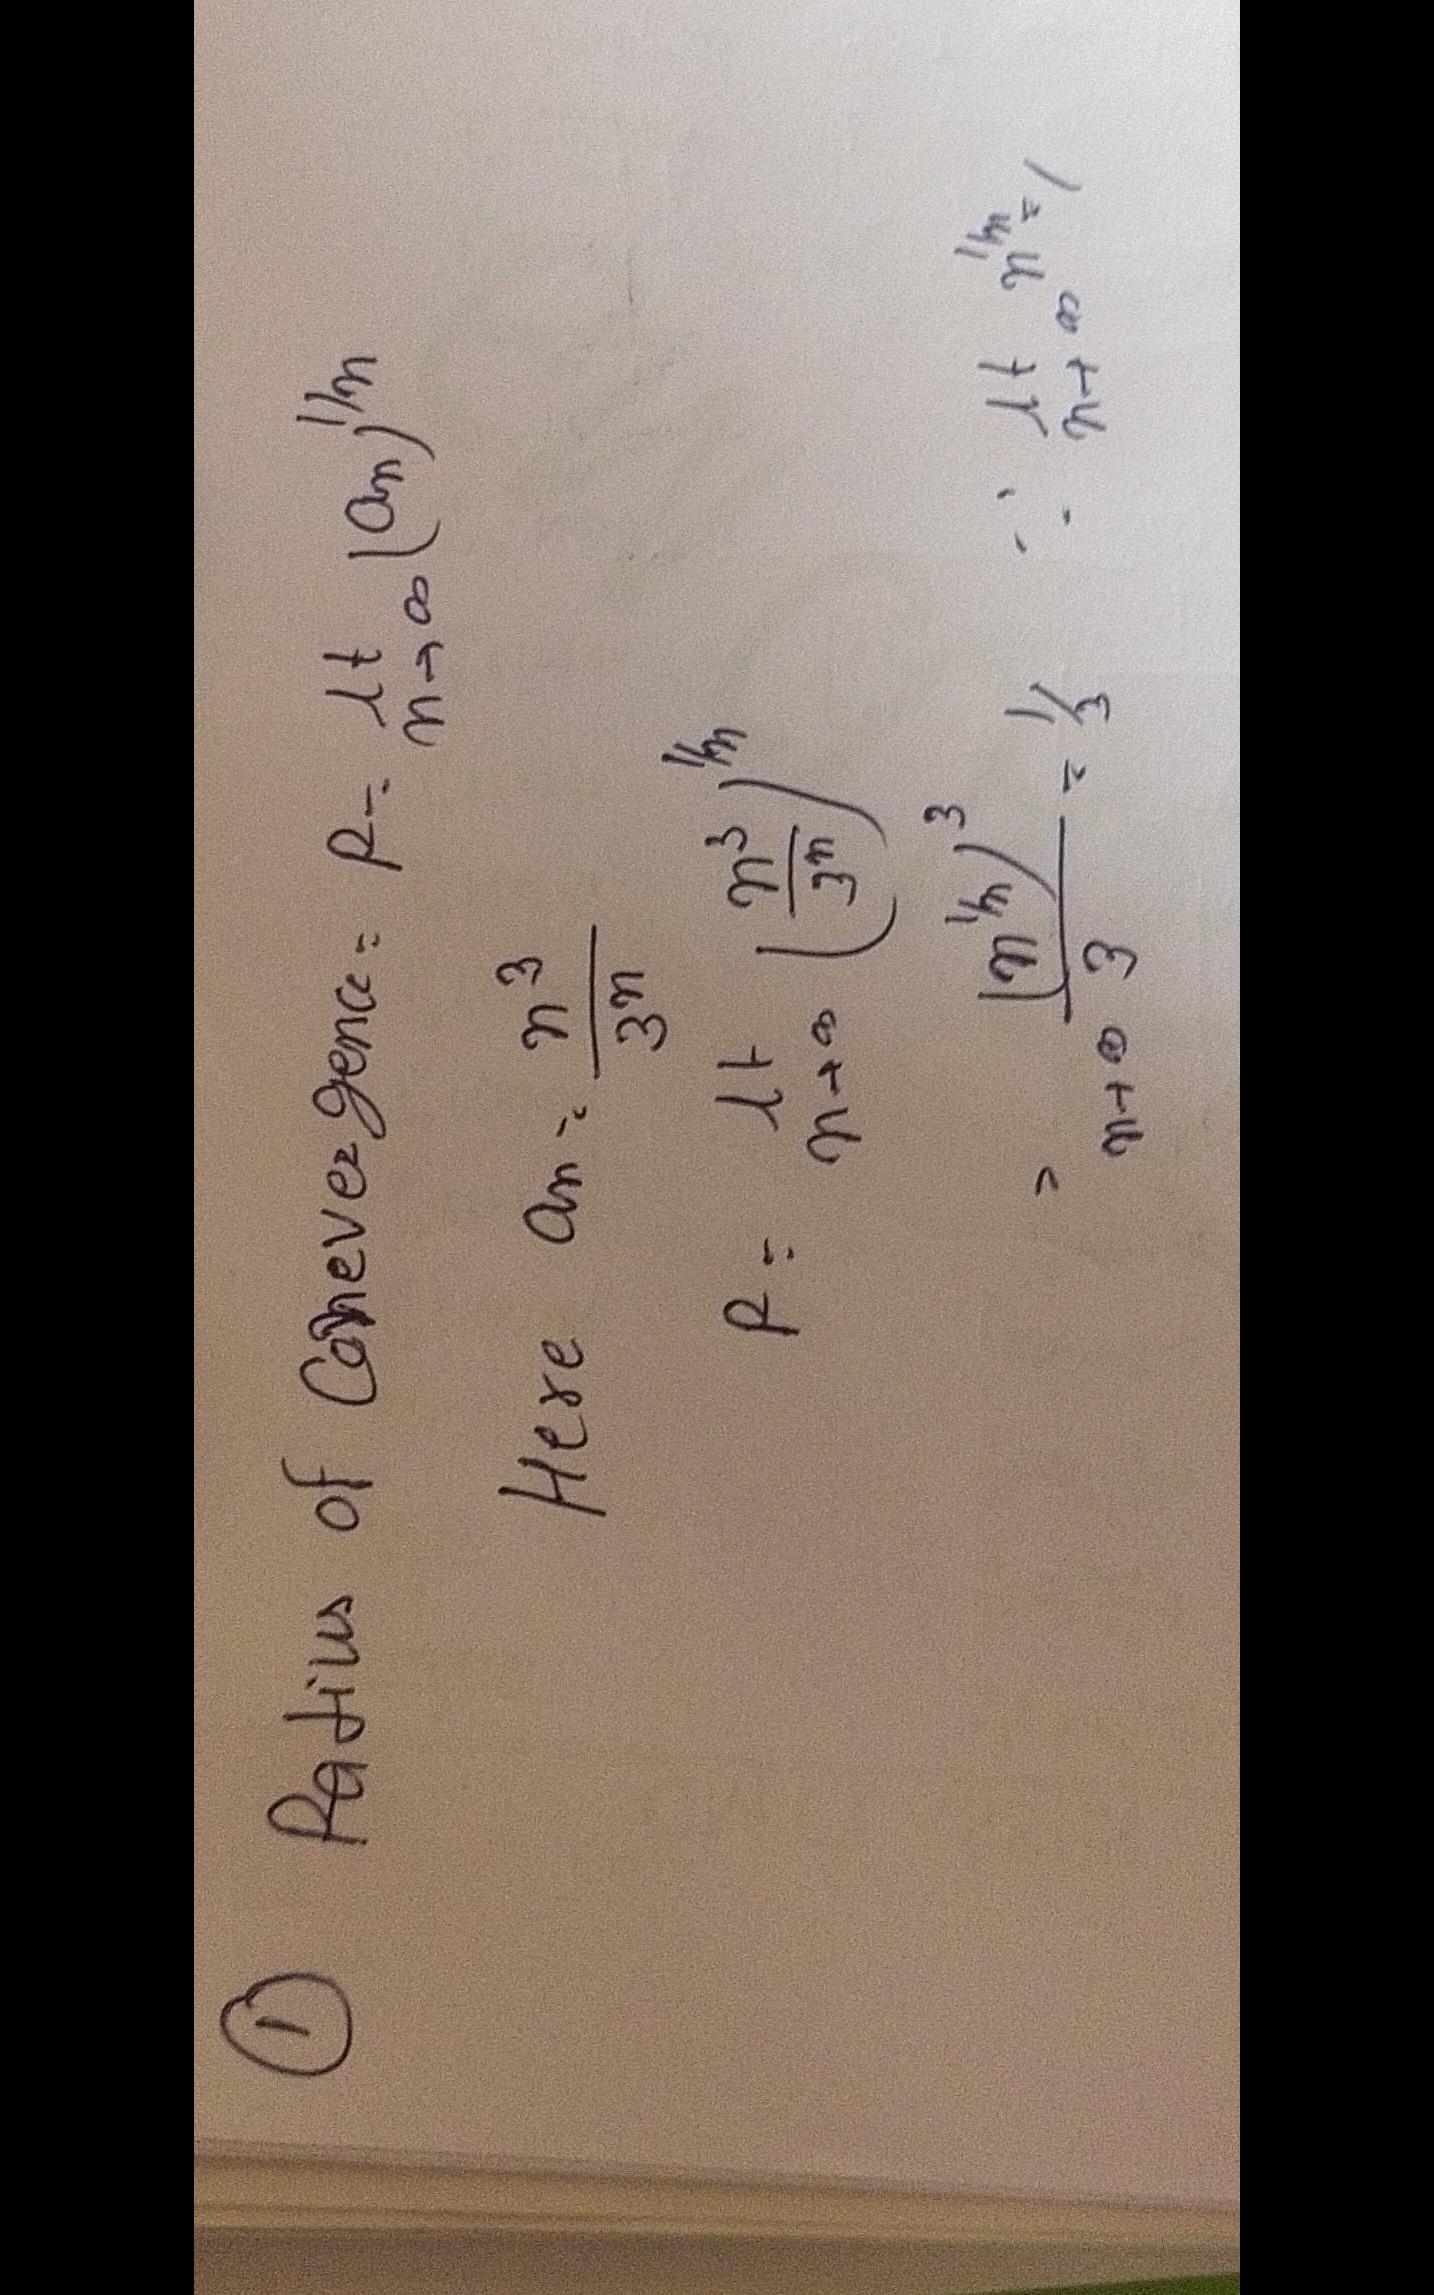 ① Radius of Conevergence = R = lt n→∞ (an)^1/n
Here an = n^3/3^n
R = lt n→∞ (n^3/3^n)^1/n
= n→∞ (n^1/n)^3/3 = 1/3 ∵ lt n→∞ n^1/n = 1